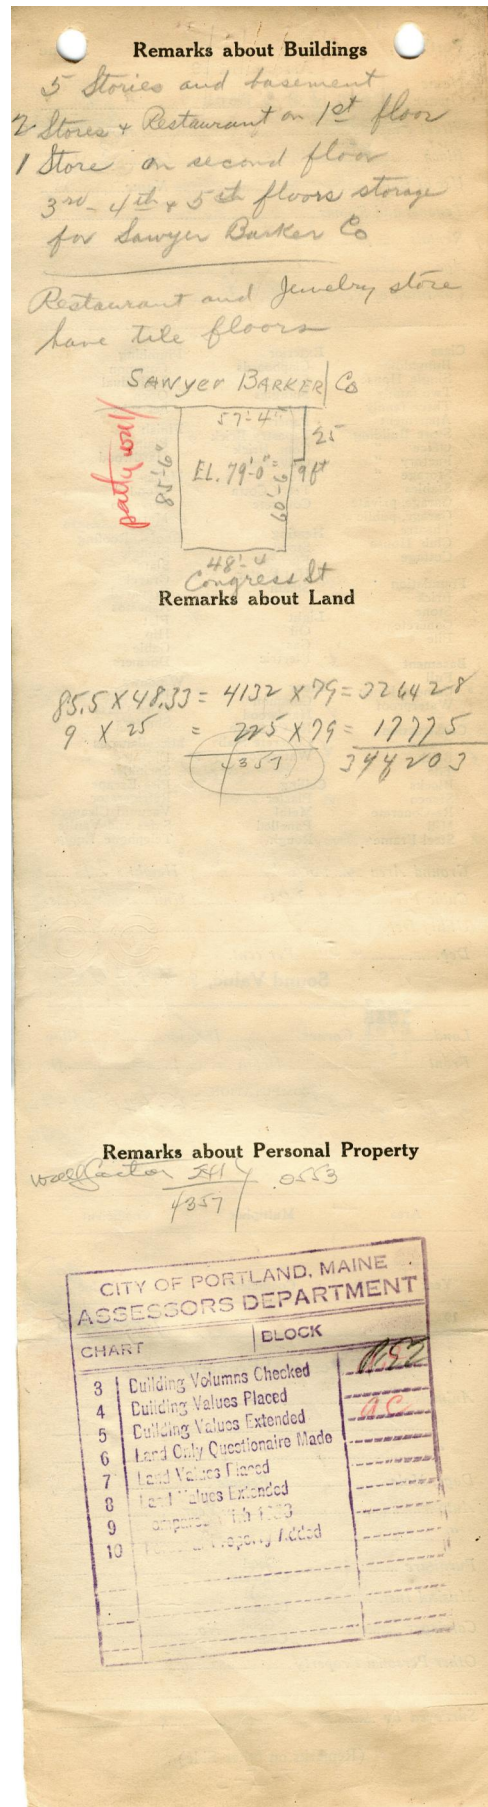 Remarks about Buildings
5 Stories and basement
2 Stores + Restaurant on 1st floor
1 Store on second floor
3rd - 4th + 5th floors storage
for Sawyer Barker Co
Restaurant and Jewelry store
have tile floors
SAWyer BARKER Co
57'-4"
25
party wall
85'-6"
EL. 79'-0"
60'-6"
9ft
48'-4
Congress St
Remarks about Land
85.5 X 48.33 = 4132 X 79 = 326428
9 X 25 = 225 X 79 = 17775
4357 344203
Remarks about Personal Property
wall factor 241 .0553
4357
CITY OF PORTLAND, MAINE
ASSESSORS DEPARTMENT
CHART BLOCK
3 Building Volumns Checked
4 Building Values Placed
5 Building Values Extended
6 Land Only Questionaire Made
7 Land Values Placed
8 Land Values Extended
9 Compared With
10 Personal Property Added